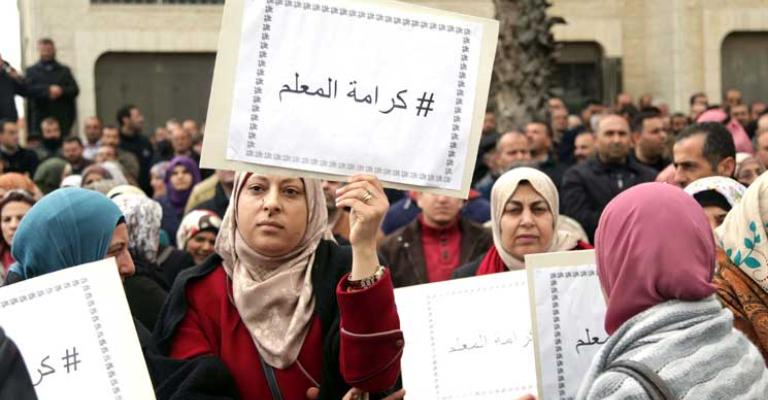 # كرامة المعلم
# كر
كرامة المعلم
# المعلم